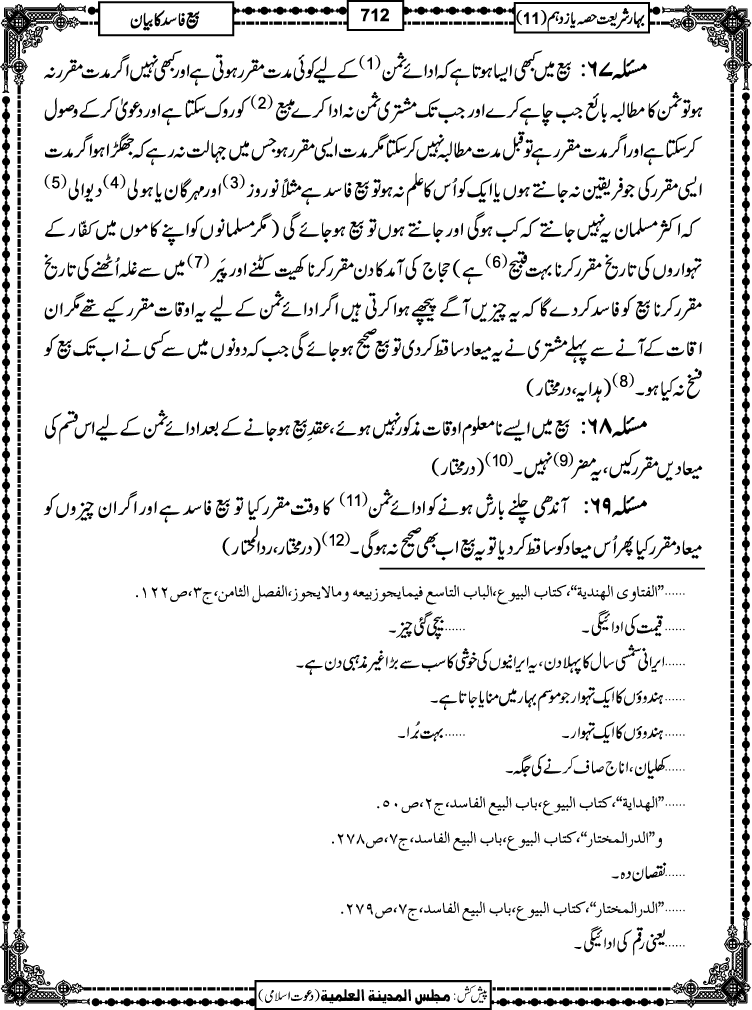 بہارِ شریعت حصہ یازدہم (11)
712
بیع فاسد کا بیان
مسئلہ ۶۷: بیع میں کبھی ایسا ہوتا ہے کہ ادائے ثمن (1) کے لیے کوئی مدت مقرر ہوتی ہے اور کبھی نہیں اگر مدت مقرر نہ
ہو تو ثمن کا مطالبہ بائع جب چاہے کرے اور جب تک مشتری ثمن نہ ادا کرے مبیع (2) کو روک سکتا ہے اور دعویٰ کرکے وصول
کرسکتا ہے اور اگر مدت مقرر ہے تو قبل مدت مطالبہ نہیں کرسکتا مگر مدت ایسی مقرر ہو جس میں جہالت نہ رہے کہ جھگڑا ہو اگر مدت
ایسی مقرر کی جو فریقین نہ جانتے ہوں یا ایک کو اُس کا علم نہ ہو تو بیع فاسد ہے مثلاً نوروز (3) اور مہرگان یا ہولی (4) دیوالی (5)
کہ اکثر مسلمان یہ نہیں جانتے کہ کب ہوگی اور جانتے ہوں تو بیع ہو جائے گی (مگر مسلمانوں کو اپنے کاموں میں کفّار کے
تہواروں کی تاریخ مقرر کرنا بہت قبیح (6) ہے) حجاج کی آمد کا دن مقرر کرنا کھیت کٹنے اور پَیر (7) میں سے غلہ اُٹھنے کی تاریخ
مقرر کرنا بیع کو فاسد کردے گا کہ یہ چیزیں آگے پیچھے ہوا کرتی ہیں اگر ادائے ثمن کے لیے یہ اوقات مقرر کیے تھے مگر ان
اقات کے آنے سے پہلے مشتری نے یہ میعاد ساقط کر دی تو بیع صحیح ہو جائے گی جب کہ دونوں میں سے کسی نے اب تک بیع کو
فسخ نہ کیا ہو۔ (8) (ہدایہ، درمختار)
مسئلہ ۶۸: بیع میں ایسے نامعلوم اوقات مذکور نہیں ہوئے، عقدِ بیع ہو جانے کے بعد ادائے ثمن کے لیے اس قسم کی
میعادیں مقرر کیں، یہ مضر (9) نہیں۔ (10) (درمختار)
مسئلہ ۶۹: آندھی چلنے بارش ہونے کو ادائے ثمن (11) کا وقت مقرر کیا تو بیع فاسد ہے اور اگر ان چیزوں کو
میعاد مقرر کیا پھر اُس میعاد کو ساقط کر دیا تو یہ بیع اب بھی صحیح نہ ہوگی۔ (12) (درمختار، ردالمحتار)
......”الفتاوی الهندیة“، کتاب البیوع، الباب التاسع فیما یجوز بیعه ومالا یجوز، الفصل الثامن، ج۳، ص۱۲۲.
...... قیمت کی ادائیگی۔ ...... بیچی گئی چیز۔
......ایرانی شمسی سال کا پہلا دن، یہ ایرانیوں کی خوشی کا سب سے بڑا غیر مذہبی دن ہے۔
......ہندوؤں کا ایک تہوار جو موسم بہار میں منایا جاتا ہے۔
......ہندوؤں کا ایک تہوار۔ ......بہت بُرا۔
......کھلیان، اناج صاف کرنے کی جگہ۔
......”الهدایة“، کتاب البیوع، باب البیع الفاسد، ج۲، ص۵۰.
و”الدرالمختار“، کتاب البیوع، باب البیع الفاسد، ج۷، ص۲۷۸.
......نقصان دہ۔
......”الدرالمختار“، کتاب البیوع، باب البیع الفاسد، ج۷، ص۲۷۹.
......یعنی رقم کی ادائیگی۔
پیش کش: مجلس المدینة العلمیة (دعوت اسلامی)